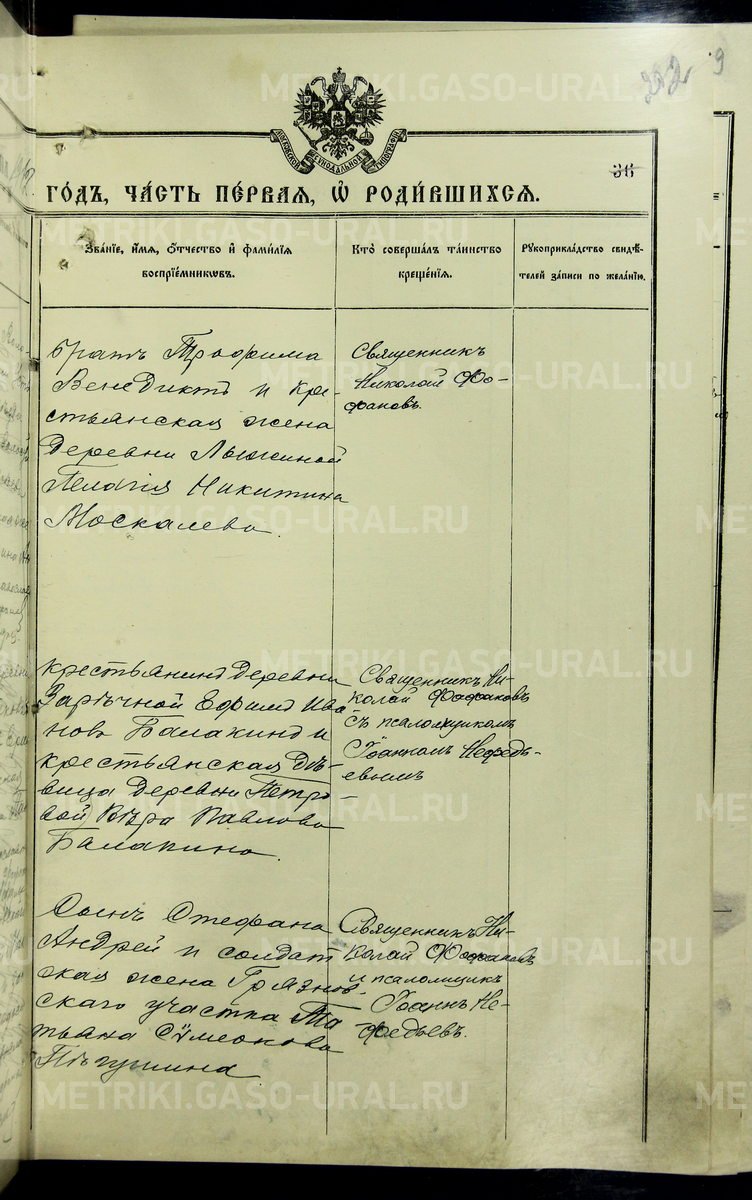 202
9
МОСКОВСКОЙ СѴНОДАЛЬНОЙ ТИПОГРАФІИ
36
ГО́ДЪ, ЧА́СТЬ ПЕ́РВАЯ, Ѽ РОДИ́ВШИХСЯ.
Зва́нїе, и́мя, о́тчество и́ фами́лїя
воспрїе́мникѡвъ.
Кто̀ соверша́лъ та́инство
креще́нїя.
Рꙋкоприкла́дство свидѣ́-
телей за́писи по жела́нїю.
братъ Трофима
Венедиктъ и кре-
стьянская жена
Деревни Лыжиной
Пелагія Никитина
Москалева.
Священникъ
Николай Фо-
фановъ.
Крестьянинъ Деревни
Зарѣчной Ефимъ Ива
новъ Балакинъ и
крестьянская Дѣ-
вица Деревни Петро-
вой Вѣра Павлова
Балакина.
Священникъ Ни-
колай Фофановъ
съ псаломщикомъ
Іоанномъ Нефедь-
евымъ
Сынъ Стефана
Андрей и солдат
ская жена Грязнов-
скаго участка Та
тьяна Сѵмеонова
Пѣгушина.
Священникъ Ни-
колай Фофановъ
и псаломщикъ
Іоаннъ Не-
федьевъ.
METRIKI.GASO-URAL.RU